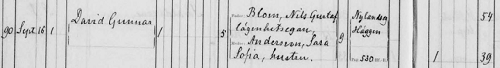 Blom, Nils Gustaf 54
David Gunnar lägenhetsegan. Nylandsg
90 Sept. 16 1 1 5 Andersson, Sara 9 Häggen
Sofia, hustru. 530 1 39